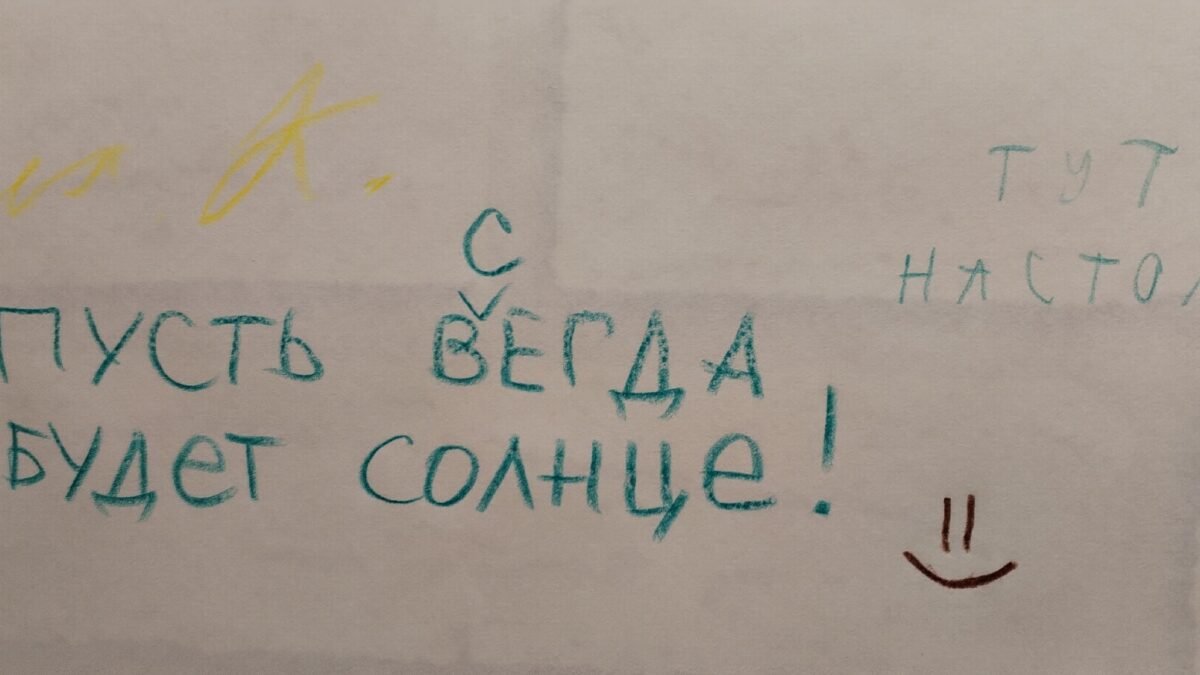 А.
ТУТ
НАСТОЛ
ПУСТЬ ВСЕГДА
БУДЕТ СОЛНЦЕ!